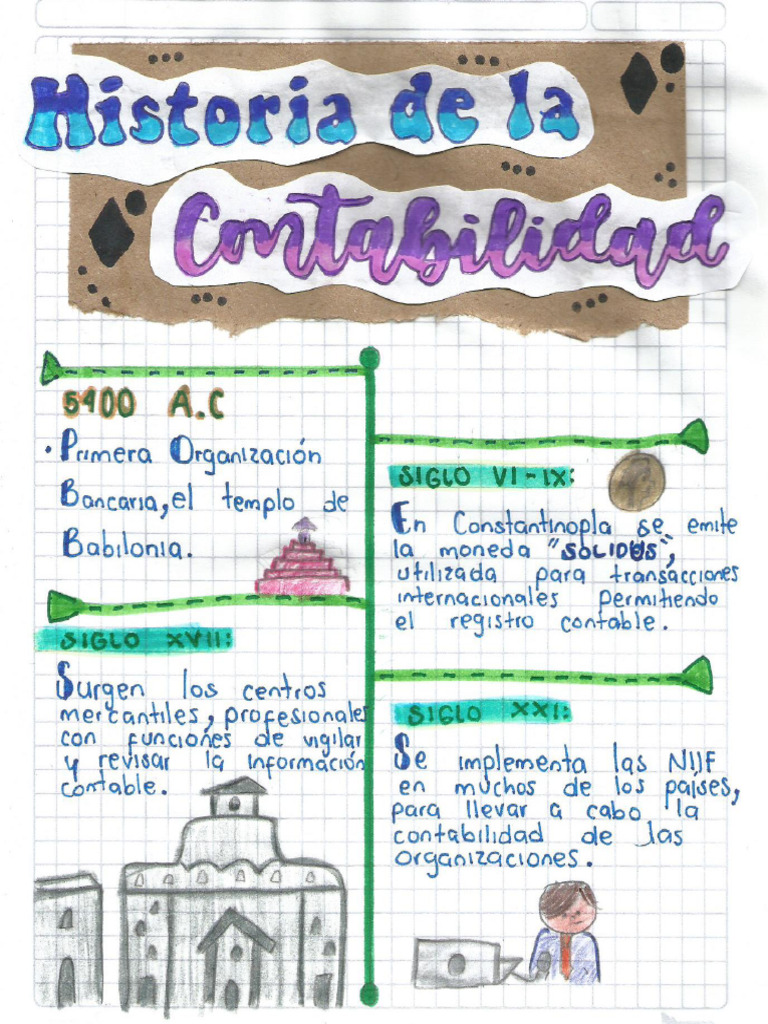 Historia de la
Contabilidad
5400 A.C
• Primera Organización
Bancaria, el templo de
Babilonia.
SIGLO VI-IX:
En Constantinopla se emite
la moneda "SOLIDUS",
utilizada para transacciones
internacionales permitiendo
el registro contable.
SIGLO XVII:
Surgen los centros
mercantiles, profesionales
con funciones de vigilar
y revisar la información
contable.
SIGLO XXI:
Se implementa las NIIF
en muchos de los países,
para llevar a cabo la
contabilidad de las
organizaciones.